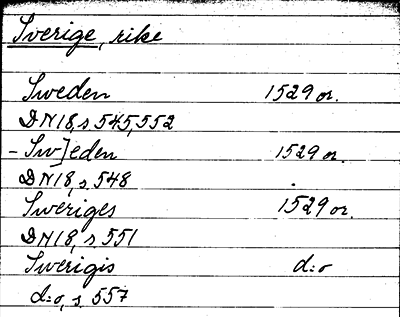 Sverige, rike
Sweden 1529 or.
DN18, s. 545, 552
- Sw]eden 1529 or.
DN18, s. 548
Sweriges 1529 or.
DN18, s. 551
Swerigis d:o
d:o, s. 557